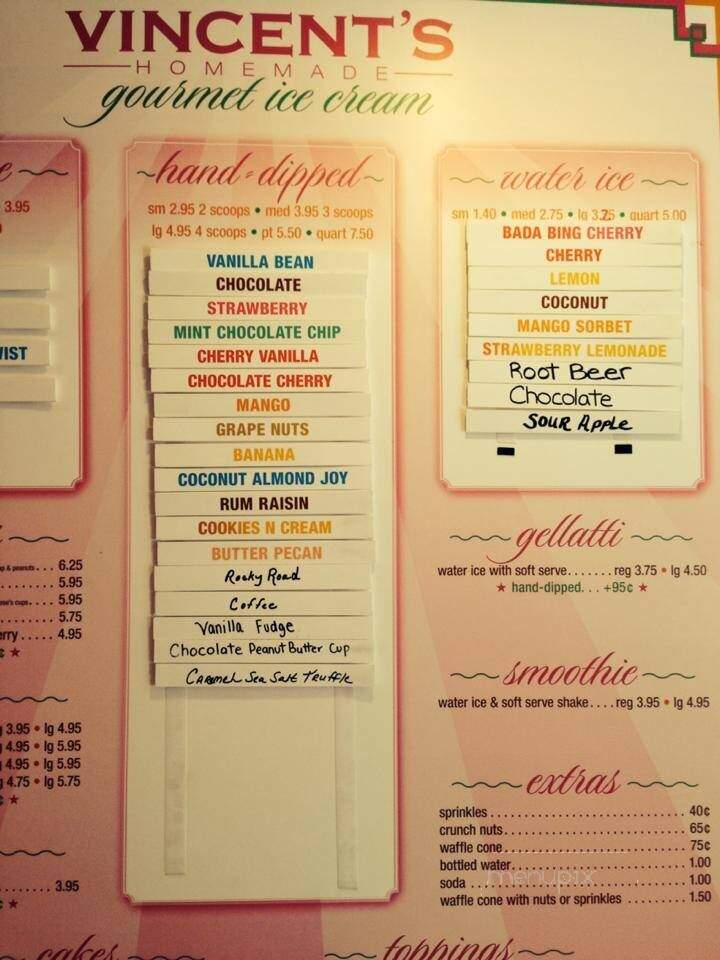 VINCENT'S
HOMEMADE
gourmet ice cream
3.95
IST
6.25
5.95
5.95
5.75
4.95
3.95 • lg 4.95
4.95 • lg 5.95
4.95 • lg 5.95
4.75 • lg 5.75
3.95
cakes
hand-dipped
sm 2.95 2 scoops • med 3.95 3 scoops
lg 4.95 4 scoops • pt 5.50 • quart 7.50
VANILLA BEAN
CHOCOLATE
STRAWBERRY
MINT CHOCOLATE CHIP
CHERRY VANILLA
CHOCOLATE CHERRY
MANGO
GRAPE NUTS
BANANA
COCONUT ALMOND JOY
RUM RAISIN
COOKIES N CREAM
BUTTER PECAN
Rocky Road
Coffee
Vanilla Fudge
Chocolate Peanut Butter Cup
Caramel Sea Salt Truffle
water ice
sm 1.40 • med 2.75 • lg 3.25 • quart 5.00
BADA BING CHERRY
CHERRY
LEMON
COCONUT
MANGO SORBET
STRAWBERRY LEMONADE
Root Beer
Chocolate
SOUR APPLE
gellatti
water ice with soft serve....... reg 3.75 • lg 4.50
★ hand-dipped. . . +95¢ ★
smoothie
water ice & soft serve shake.... reg 3.95 • lg 4.95
extras
sprinkles .......... 40¢
crunch nuts .......... 65¢
waffle cone .......... 75¢
bottled water .......... 1.00
soda .......... 1.00
waffle cone with nuts or sprinkles ......... 1.50
menupix
toppings